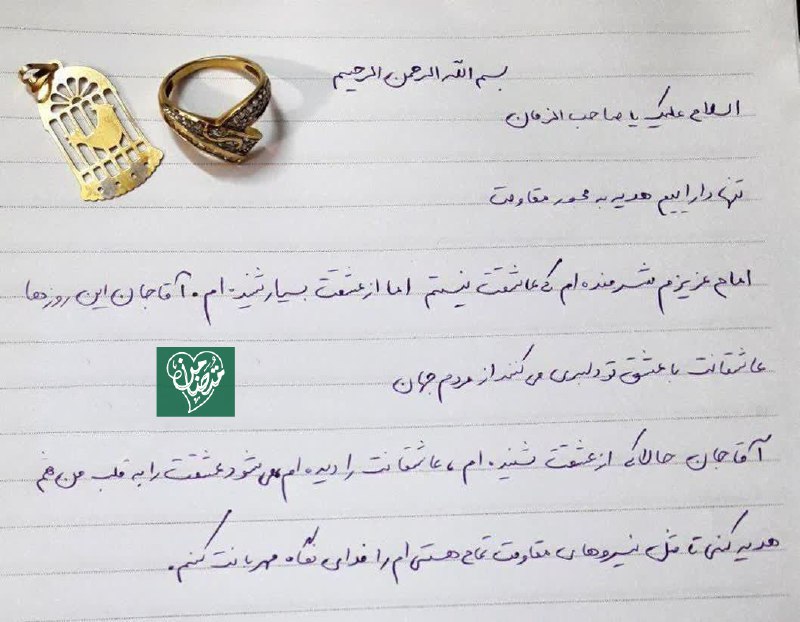 بسم الله الرحمن الرحیم
السلام علیک یا صاحب الزمان
تنها داراییم هدیه به محور مقاومت
امام عزیزم شرمنده ام که عاشقت نیستم اما از عشقت بسیار شنیده ام. آقا جان این روزها
عاشقانت با عشق تو دلبری می کنند از مردم جهان
آقا جان حالا که از عشقت شنیده ام، عاشقانت را دیده ام، می شود عشقت را به قلب من هم
هدیه کنی تا مثل نیروهای مقاومت تمام هستی ام را فدای نگاه مهربانت کنم.